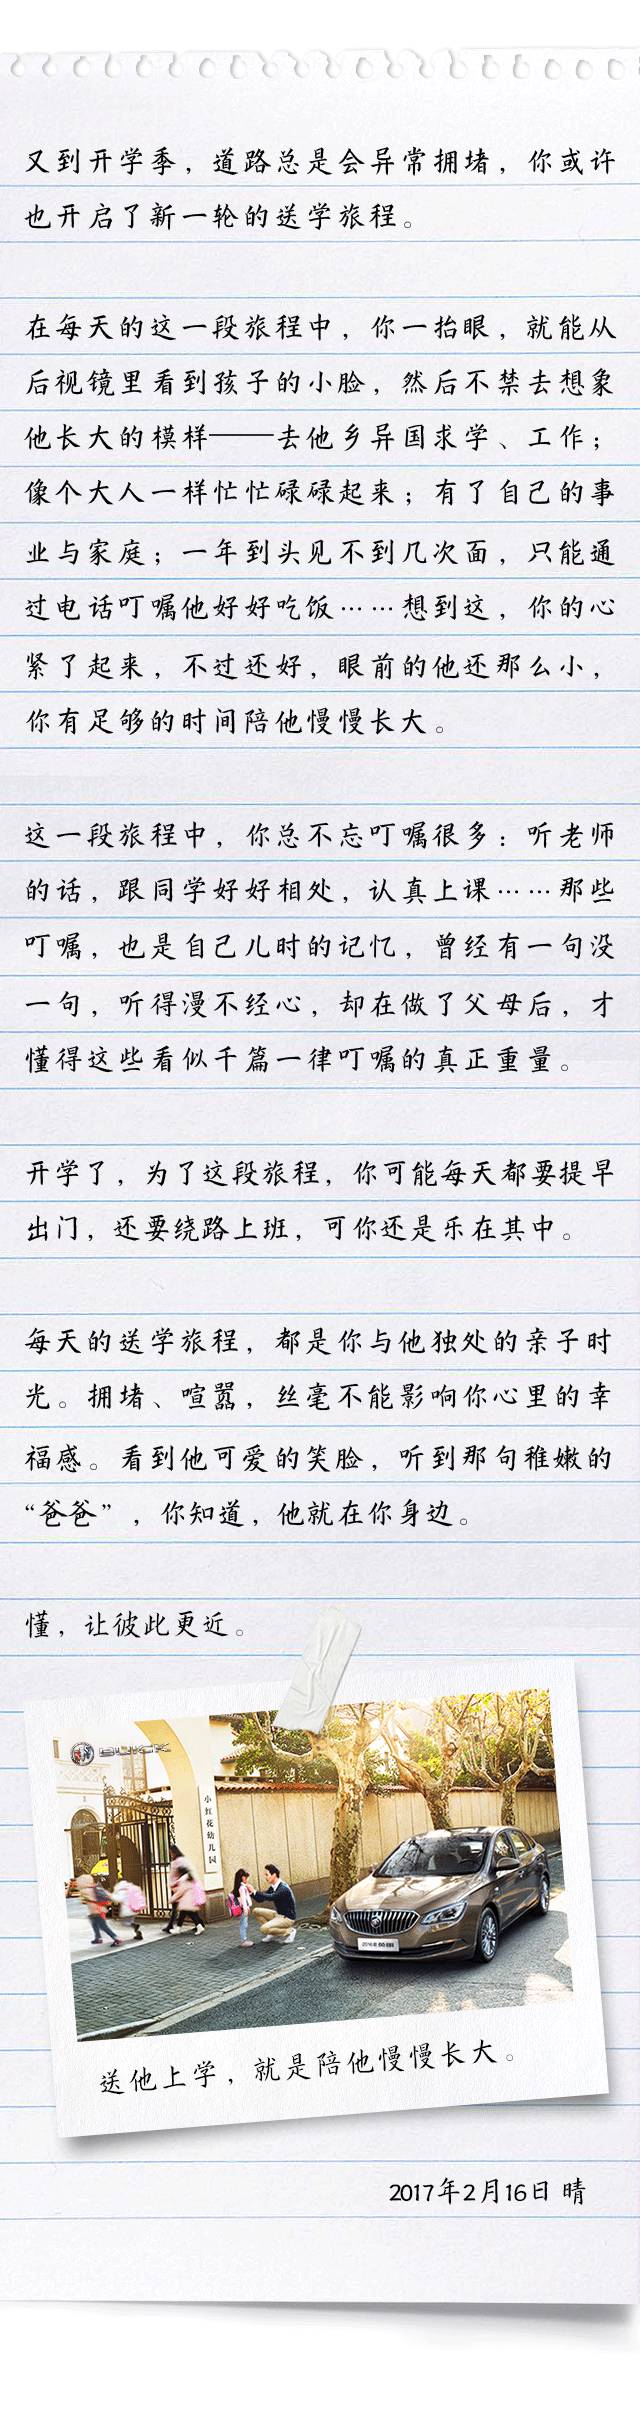 又到开学季，道路总是会异常拥堵，你或许
也开启了新一轮的送学旅程。
在每天的这一段旅程中，你一抬眼，就能从
后视镜里看到孩子的小脸，然后不禁去想象
他长大的模样——去他乡异国求学、工作；
像个大人一样忙忙碌碌起来；有了自己的事
业与家庭；一年到头见不到几次面，只能通
过电话叮嘱他好好吃饭……想到这，你的心
紧了起来，不过还好，眼前的他还那么小，
你有足够的时间陪他慢慢长大。
这一段旅程中，你总不忘叮嘱很多：听老师
的话，跟同学好好相处，认真上课……那些
叮嘱，也是自己儿时的记忆，曾经有一句没
一句，听得漫不经心，却在做了父母后，才
懂得这些看似千篇一律叮嘱的真正重量。
开学了，为了这段旅程，你可能每天都要提早
出门，还要绕路上班，可你还是乐在其中。
每天的送学旅程，都是你与他独处的亲子时
光。拥堵、喧嚣，丝毫不能影响你心里的幸
福感。看到他可爱的笑脸，听到那句稚嫩的
“爸爸”，你知道，他就在你身边。
懂，让彼此更近。
BUICK
小红花幼儿园
送他上学，就是陪他慢慢长大。
2017年2月16日 晴